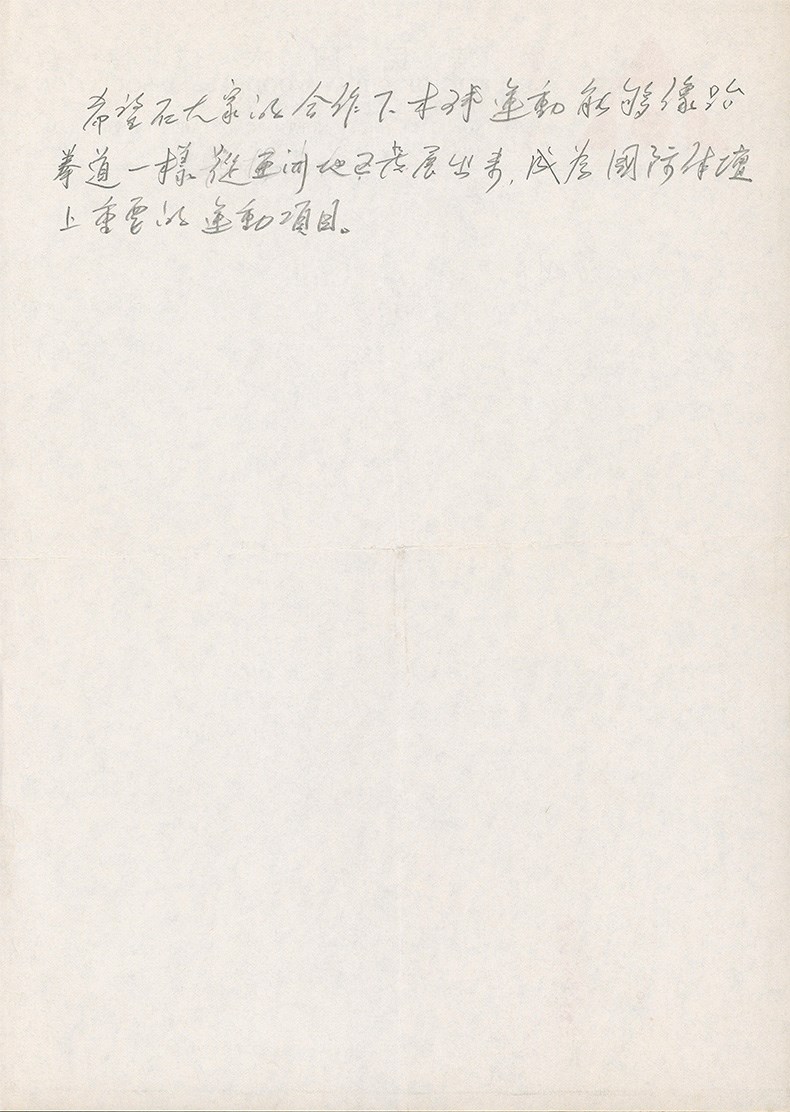 希望在大家的合作下木球運動能够像跆
拳道一樣從亞洲地区發展出来，成為國际体壇
上重要的運動項目。